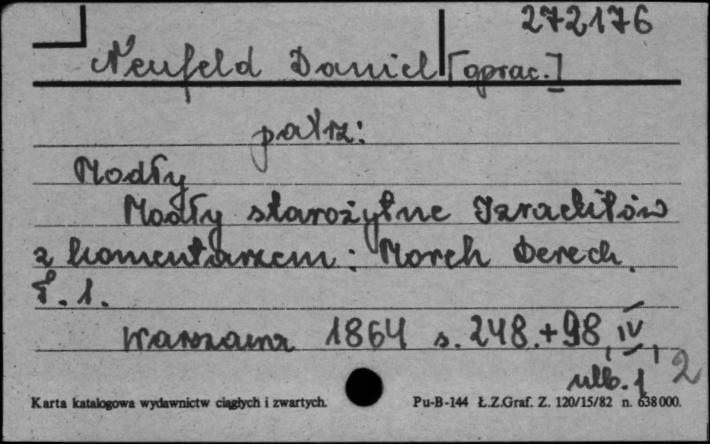 272176
Neufeld Daniel [oprac.]
patrz:
Modły
Modły starożytne Izraelitów
z komentarzem: Moreh Derech.
T. 1.
Warszawa 1864 s. 248.+98, IV,
nlb. 1 2
Karta katalogowa wydawnictw ciągłych i zwartych.
Pu-B-144 Ł.Z.Graf. Z. 120/15/82 n. 638000.